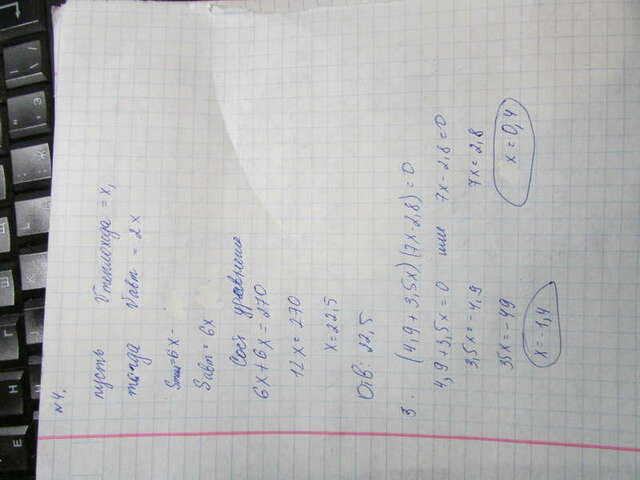 Е Н Г Ш
№4.
пусть Vтеплохода = x,
тогда Vавт = 2x
Sтепл=6x
Sавт = 6x
Сост уравнение
6x+6x=270
12x=270
x=22,5
Отв: 22,5
3. (4,9+3,5x)(7x-2,8)=0
4,9+3,5x=0 или 7x-2,8=0
3,5x=-4,9 7x=2,8
35x=-49 x=0,4
x=-1,4